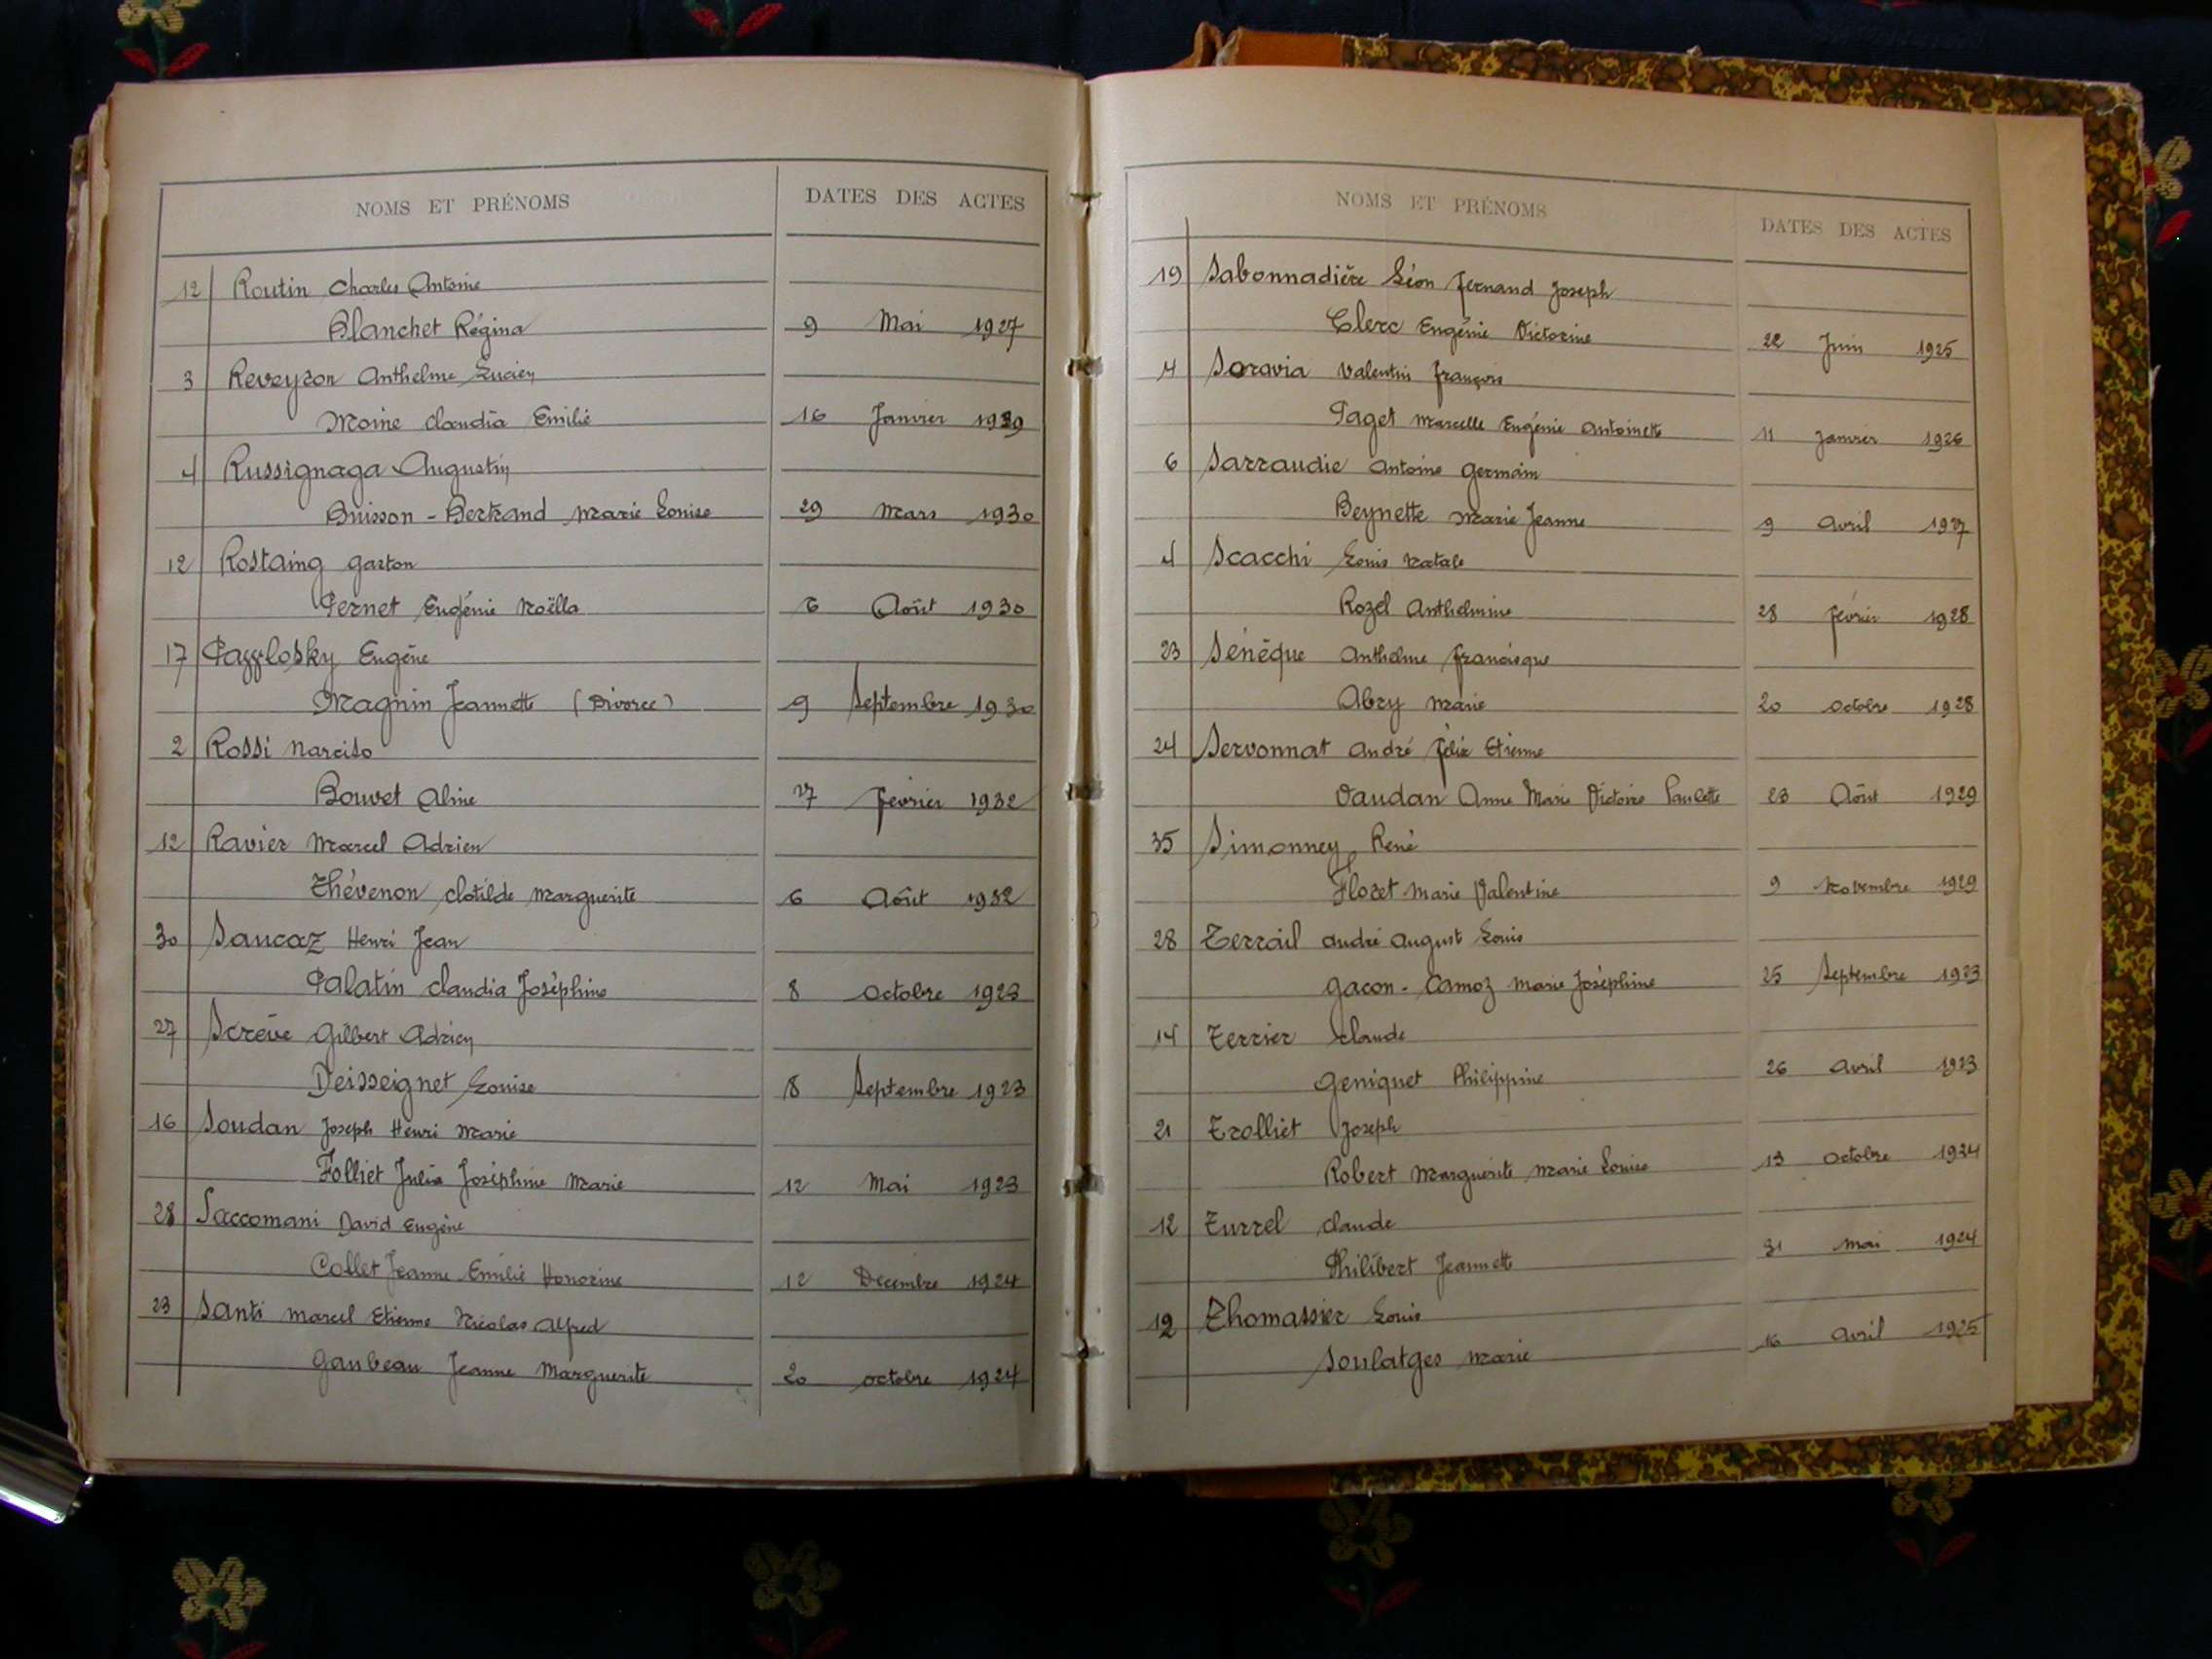 NOMS ET PRÉNOMS DATES DES ACTES
12 Routin Charles Antoine
Blanchet Régina 9 Mai 1927
3 Reveyron Anthelme Lucien
Moine Claudia Emilie 16 Janvier 1929
4 Russignaga Augustin
Buisson - Bertrand Marie Louise 29 Mars 1930
12 Rostaing Gaston
Pernet Eugénie Noëlla 6 Août 1930
17 Eugène
Magnin Jeannette (Divorce) 9 Septembre 1930
2 Rossi Narciso
Bouvet Aline 27 Février 1932
12 Ravier Marcel Adrien
Thévenon Clotilde Marguerite 6 Août 1932
30 Saucaz Henri Jean
Palatin Claudia Joséphine 8 Octobre 1923
27 Screve Gilbert Adrien
Deisseignet Louise 8 Septembre 1923
16 Soudan Joseph Henri Marie
Folliet Julia Joséphine Marie 12 Mai 1923
28 Saccomani David Eugène
Collet Jeanne Emilie Honorine 12 Décembre 1924
23 Santi Marcel Etienne Nicolas Alfred
Gaubeau Jeanne Marguerite 20 octobre 1924
NOMS ET PRÉNOMS DATES DES ACTES
19 Sabonnadière Léon Fernand Joseph
Clerc Eugénie Victorine 22 Juin 1925
4 Soravia Valentin François
Paget Marcelle Eugénie Antoinette 11 Janvier 1926
6 Sarraudie Antoine Germain
Beynette Marie Jeanne 9 Avril 1927
4 Scacchi Louis Natale
Rozel Anthelmine 28 Février 1928
23 Sénèque Anthelme Francisque
Abry Marie 20 Octobre 1928
24 Servonnat André Félix Etienne
Vaudan Anne Marie Victoire Paulette 23 Août 1929
35 Simonney René
Floret Marie Valentine 9 Novembre 1929
28 Terrail André August Louis
Gacon - Camoz Marie Joséphine 25 Septembre 1923
14 Terrier Claude
Geniquet Philippine 26 Avril 1923
21 Trolliet Joseph
Robert Marguerite Marie Louise 13 Octobre 1924
12 Turrel Claude
Philibert Jeannette 31 Mai 1924
12 Thomassier Louis
Soulatges Marie 16 Avril 1925